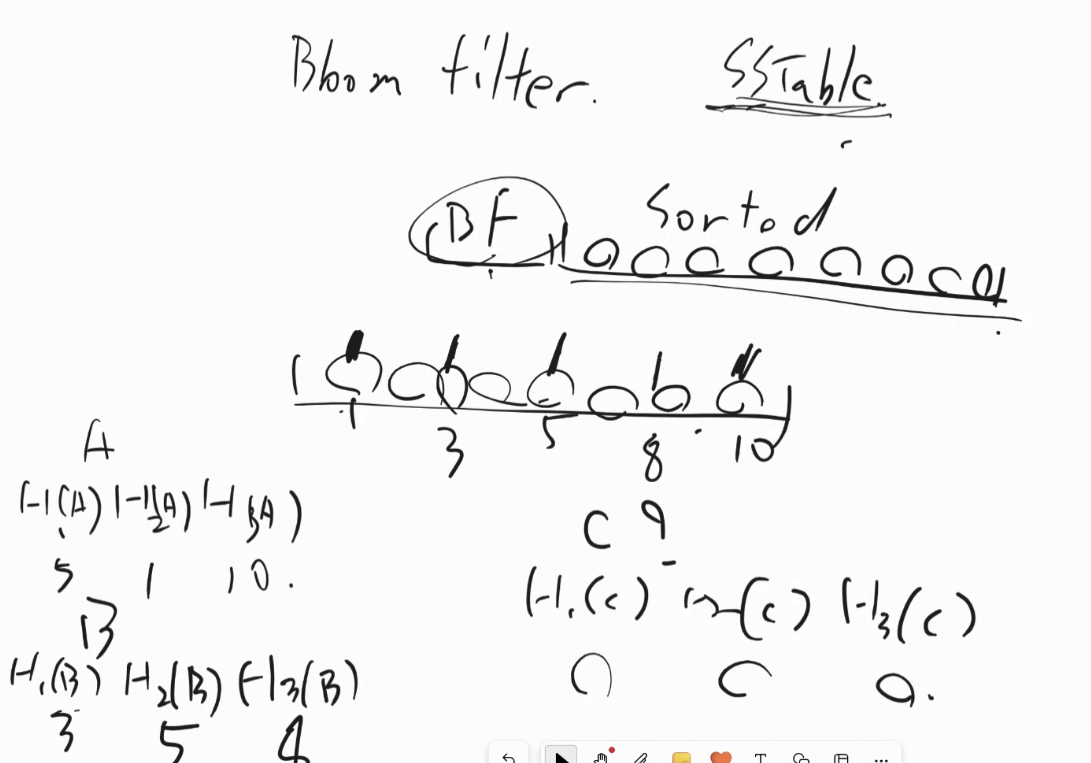 Bloom filter. SSTable
BF Sorted
0 0 0 0 0 0 0 0
1 3 5 8 10
A
H1(A) H2(A) H3(A)
5 1 10.
B
H1(B) H2(B) H3(B)
3 5
C ?
H1(C) H2(C) H3(C)
0 0 0.
T